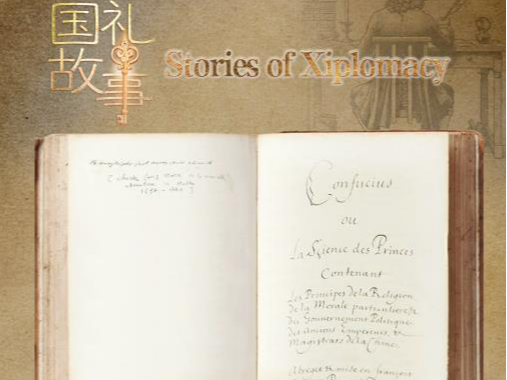 国礼
故事
Stories of Xiplomacy
Confucius
ou
La Science des Princes
Contenant
Les Principes de la Religion
de la Morale particuliere, &
du Gouvernement Politique
des Anciens Empereurs, &
Magistrats de la Chine.
Abregée & mise en françois